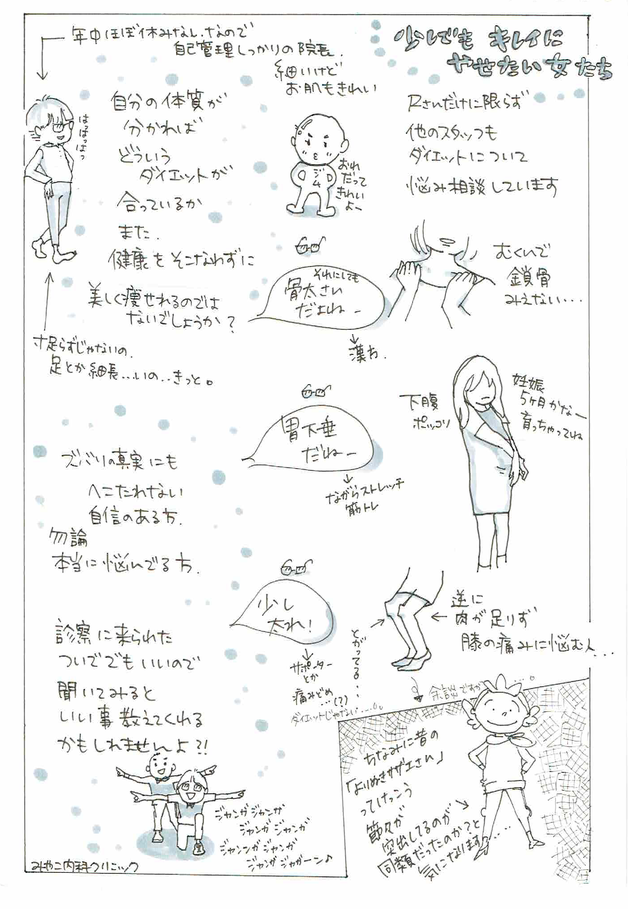 少しでも キレイに
やせたい女たち
Rさんだけに限らず
他のスタッフも
ダイエットについて
悩み相談しています
むくいで
鎖骨
みえない…
それにしても
骨太さい
だよねー
漢方.
妊娠
5ヶ月かなー
育っちゃってね
下腹
ポッコリ
胃下垂
だねー
ながらストレッチ
筋トレ
逆に
肉が足りず
膝の痛みに悩む人…
とがってる…
少し
太れ!
サポーター
とか
痛みどめ
…(?)
ダイエットじゃない……。
余談ですが……。
ちなみに昔の
「よりぬきサザエさん」
ってけっこう
節々が
突出してるのが
同類だったのか?と
気になります……
年中ほぼ休みなし.なので
自己管理しっかりの院長.
細いけど
お肌もきれい
はっはっはっ
おれ
だって
きれい
よー
ジム
自分の体質が
分かれば
どういう
ダイエットが
合っているか
また.
健康をそこなわずに
美しく痩せれるのでは
ないでしょうか?
寸足らずじゃないの.
足とか細長…いの..きっと。
ズバリの真実にも
へこたれない
自信のある方.
勿論
本当に悩んでる方.
診察に来られた
ついででもいいので
聞いてみると
いい事教えてくれる
かもしれませんよ?!
ジャンガジャンガ
ジャンガジャンガ
ジャンンガジャンガ
ジャンガジャガーン♪
みやこ内科クリニック